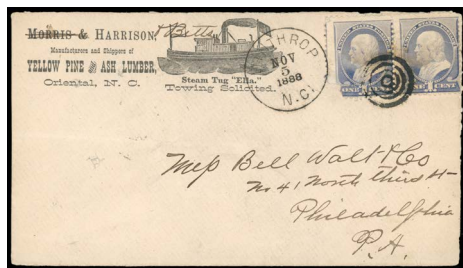 Morris & Harrison, & Betts
Manufacturers and Shippers of
YELLOW PINE and ASH LUMBER,
Oriental, N. C.
Steam Tug "Ella."
Towing Solicited.
THROP
NOV
5
1888
N.C.
ONE CENT
ONE CENT
Mess Bell Walt & Co
No 41 North third St
Philadelphia
P.A.